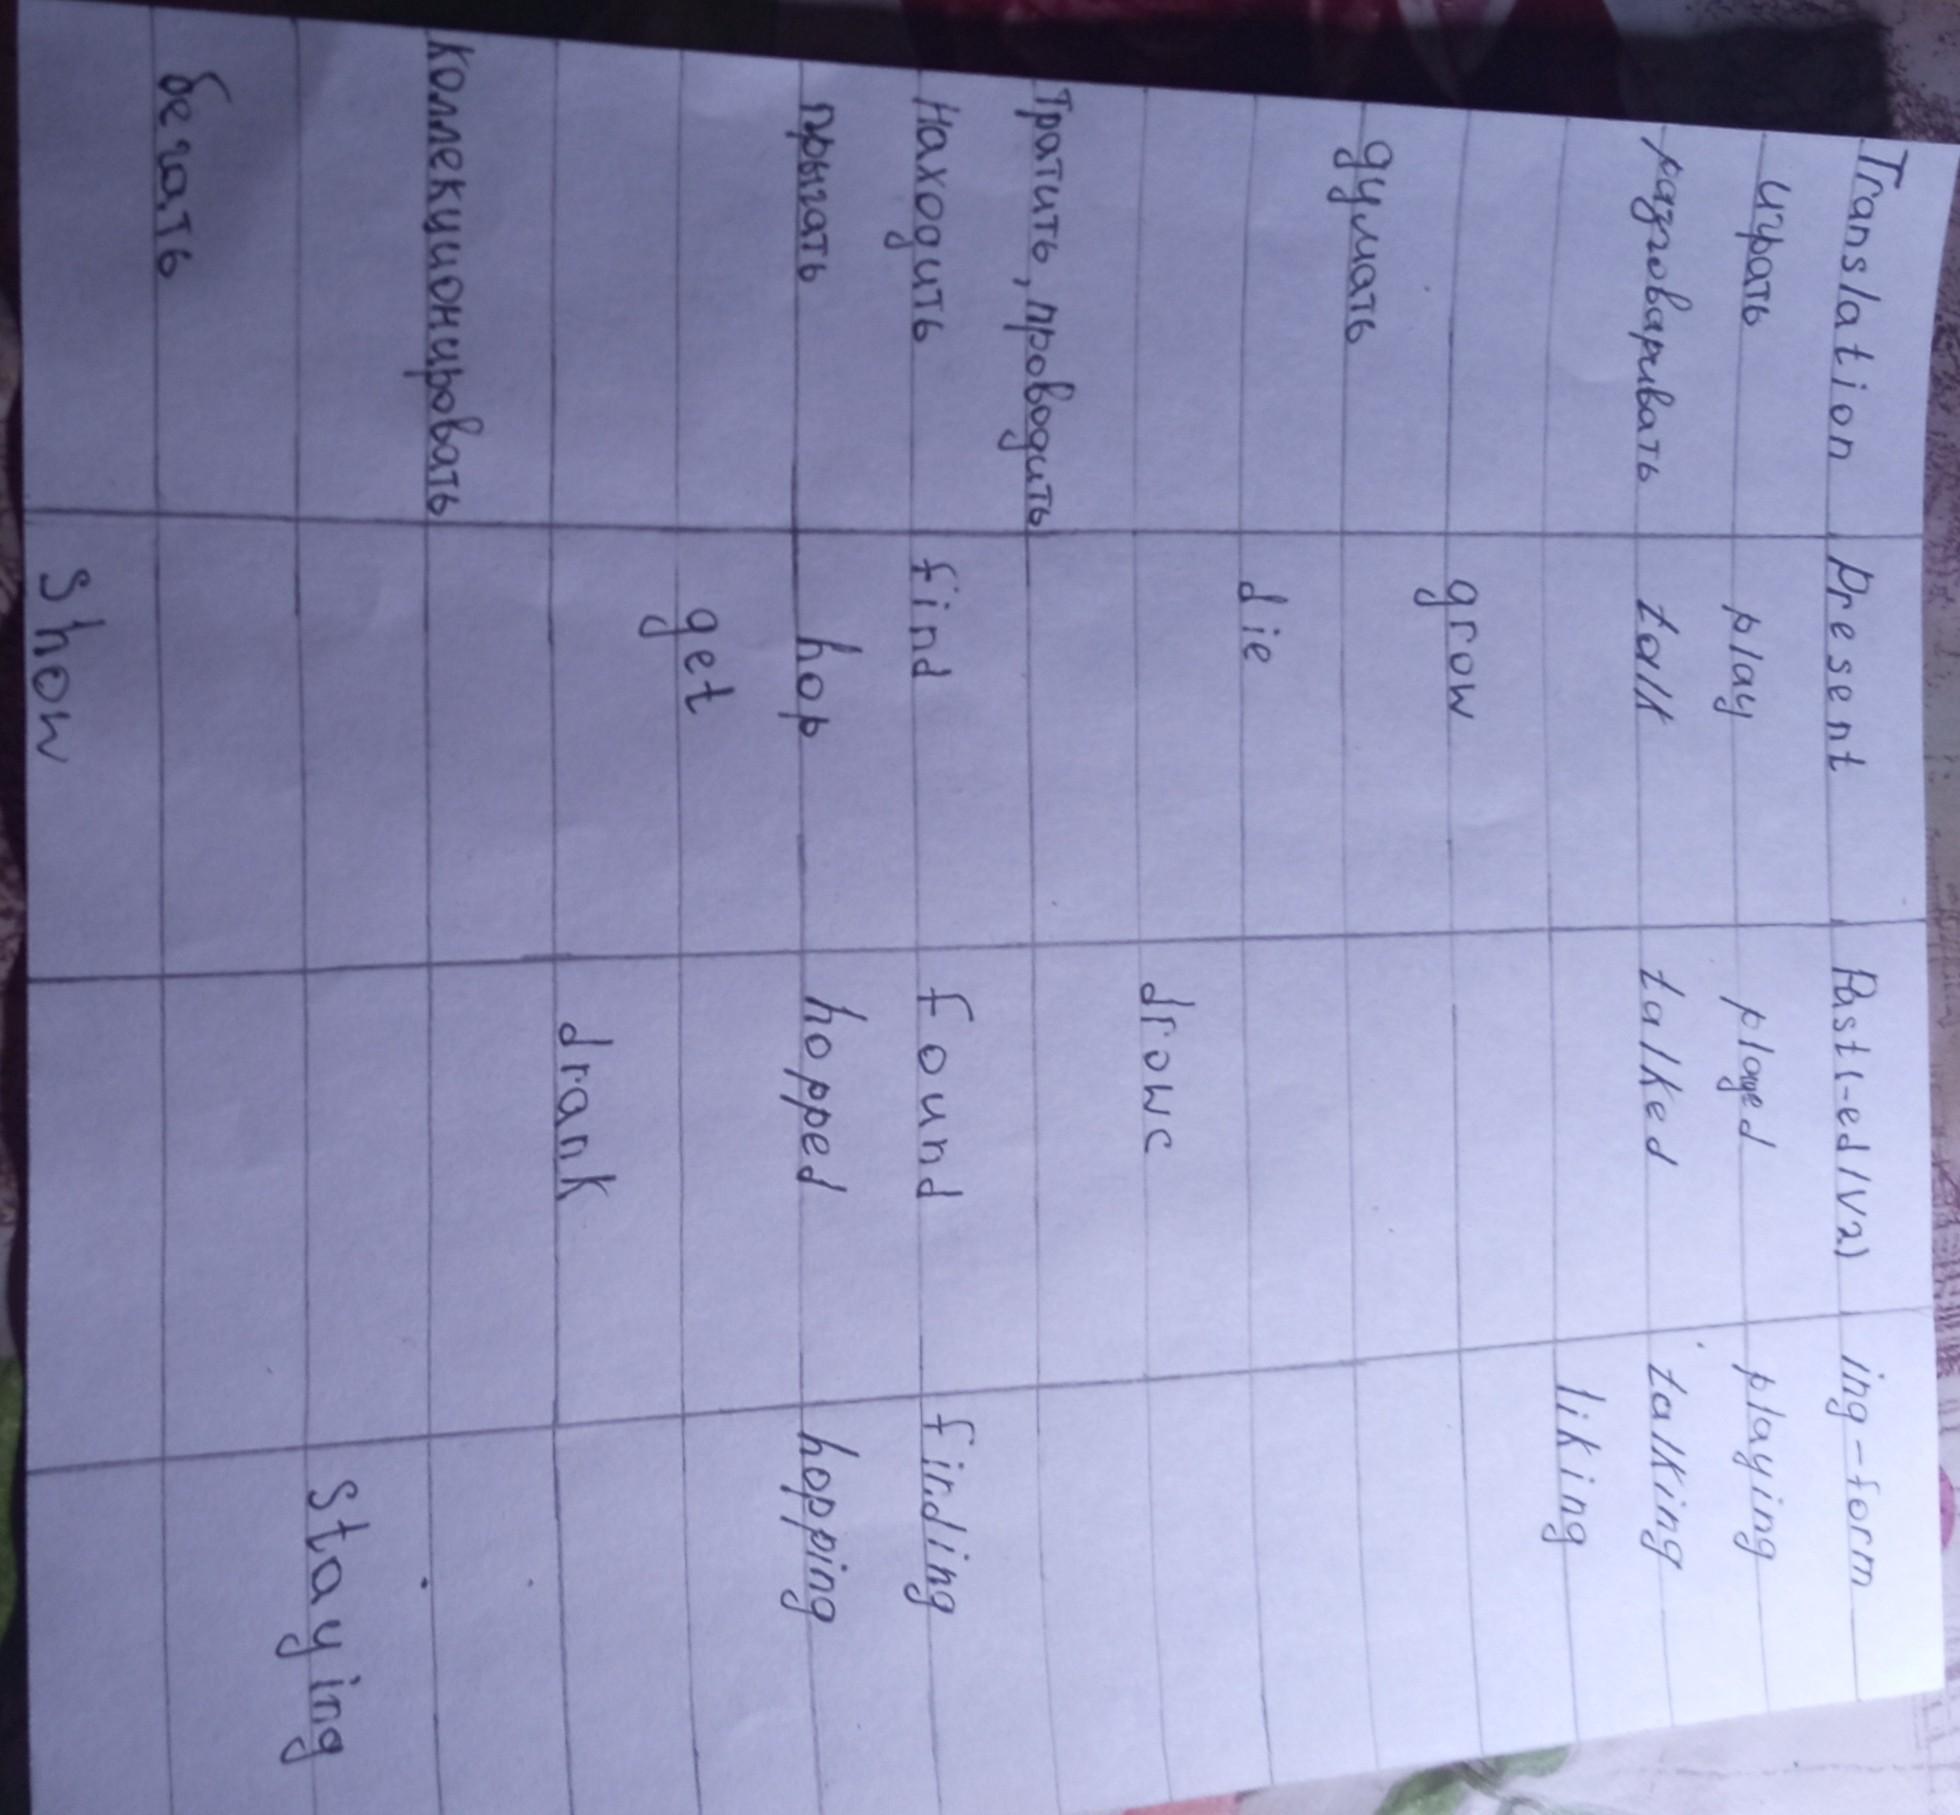 Translation Present Past(-ed/V2) ing-form
играть play played playing
разговаривать talk talked talking
liking
grow
думать
die
drowc
Тратить, проводить
Находить find found finding
прыгать hop hopped hopping
get
drank
коллекционировать
staying
бегать
show